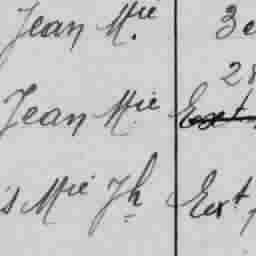 Jean M.ie 3e
28
Jean Mie Ext
s Mie Jh Ext